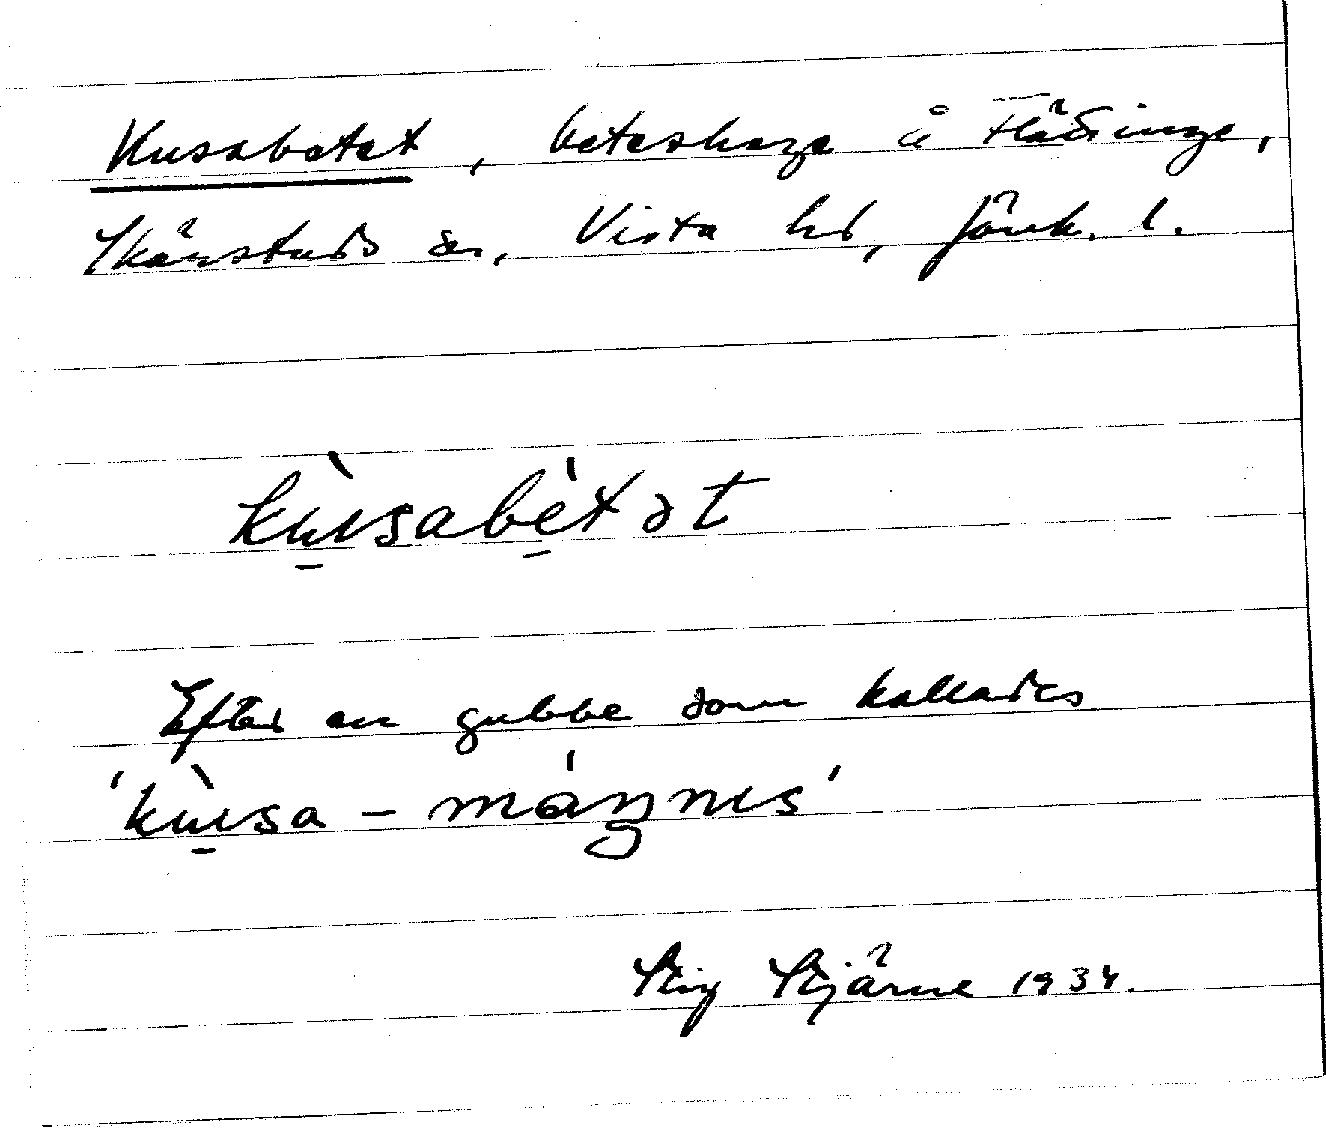 Kusabetet, beteshage å Flädinge,
Skärstads sn, Vista hd, Jönk. l.
kùsabètət
Efter en gubbe som kallades
'kùsa-màŋnɯs'
Stig Stjärne 1934.